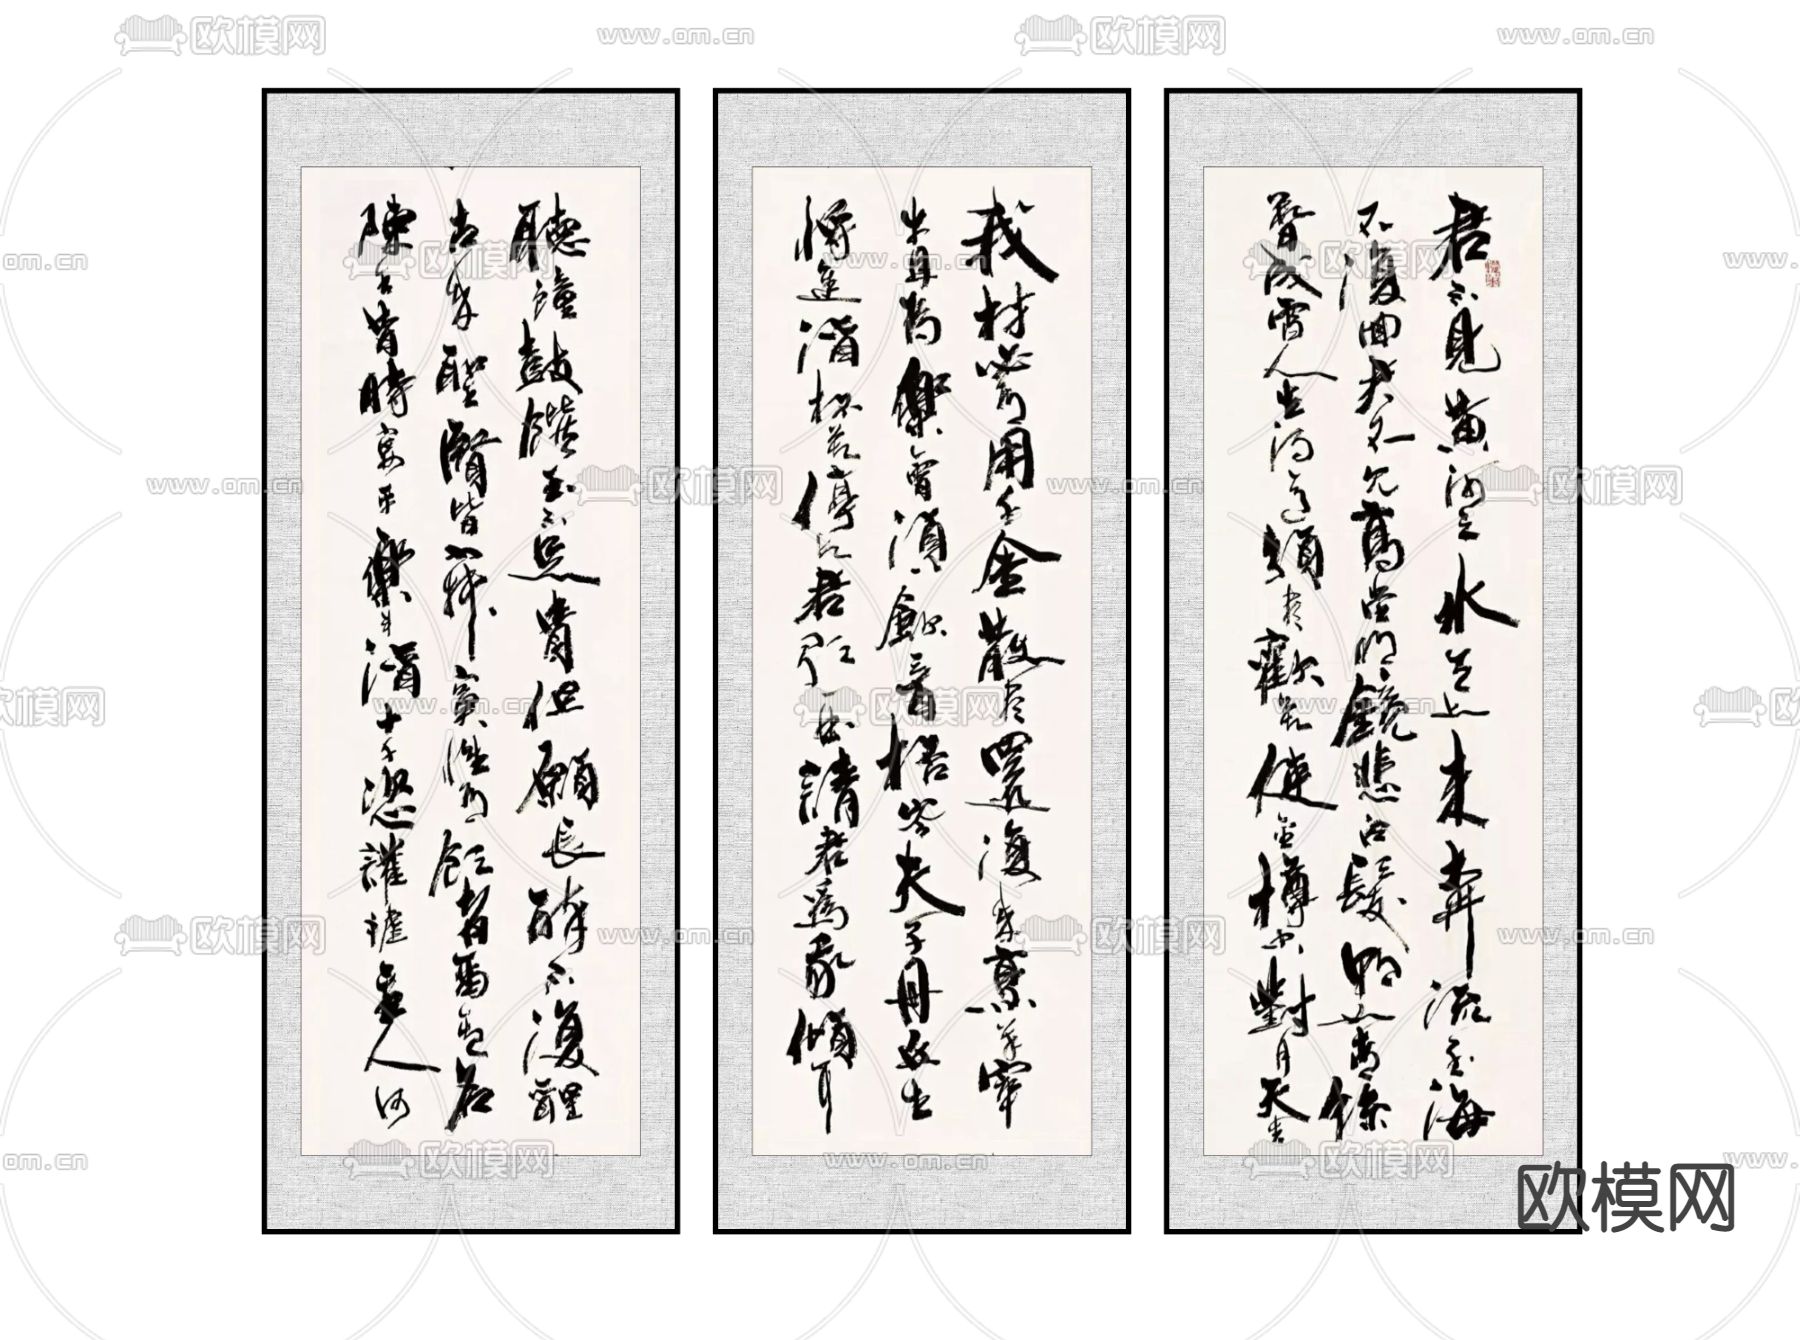 君不見黃河之水天上来奔流至海
不復回君不見高堂明鏡悲白髮朝如青絲
暮成雪人生得意須盡歡莫使金樽空對月天生
我材必有用千金散盡還復来烹羊宰
牛且為樂會須一飲三百杯岑夫子丹丘生
將進酒杯莫停與君歌一曲請君為我傾耳
聽鐘鼓饌玉不足貴但願長醉不復醒
古来聖賢皆寂寞惟有飲者留其名
陳王昔時宴平樂斗酒十千恣讙謔主人何
欧模网
www.om.cn